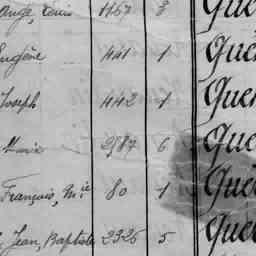 Ange Louis 1167 8 Qué
Eugène 441 1 Qué
Joseph 442 1 Quer
Marie 2587 6 Qué
François, M.ie 80 1 Qué
Jean, Baptiste 2325 5 Quer